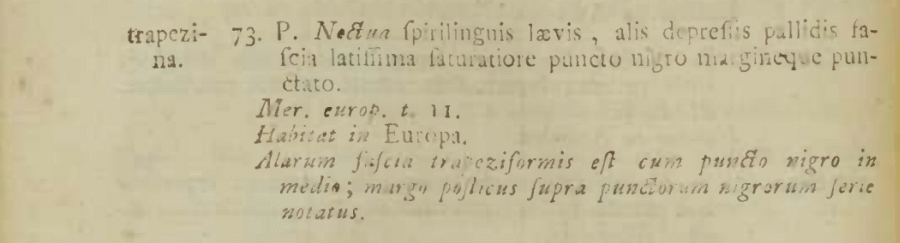 trapezi-
na.
73. P. Noctua ſpirilinguis lævis, alis depreſſis pallidis fa-
ſcia latiſſima ſaturatiore puncto nigro margineque pun-
ctato.
Mer. europ. t. 11.
Habitat in Europa.
Alarum faſcia trapeziformis eſt cum puncto nigro in
medio; margo poſticus ſupra punctorum nigrorum ſerie
notatus.